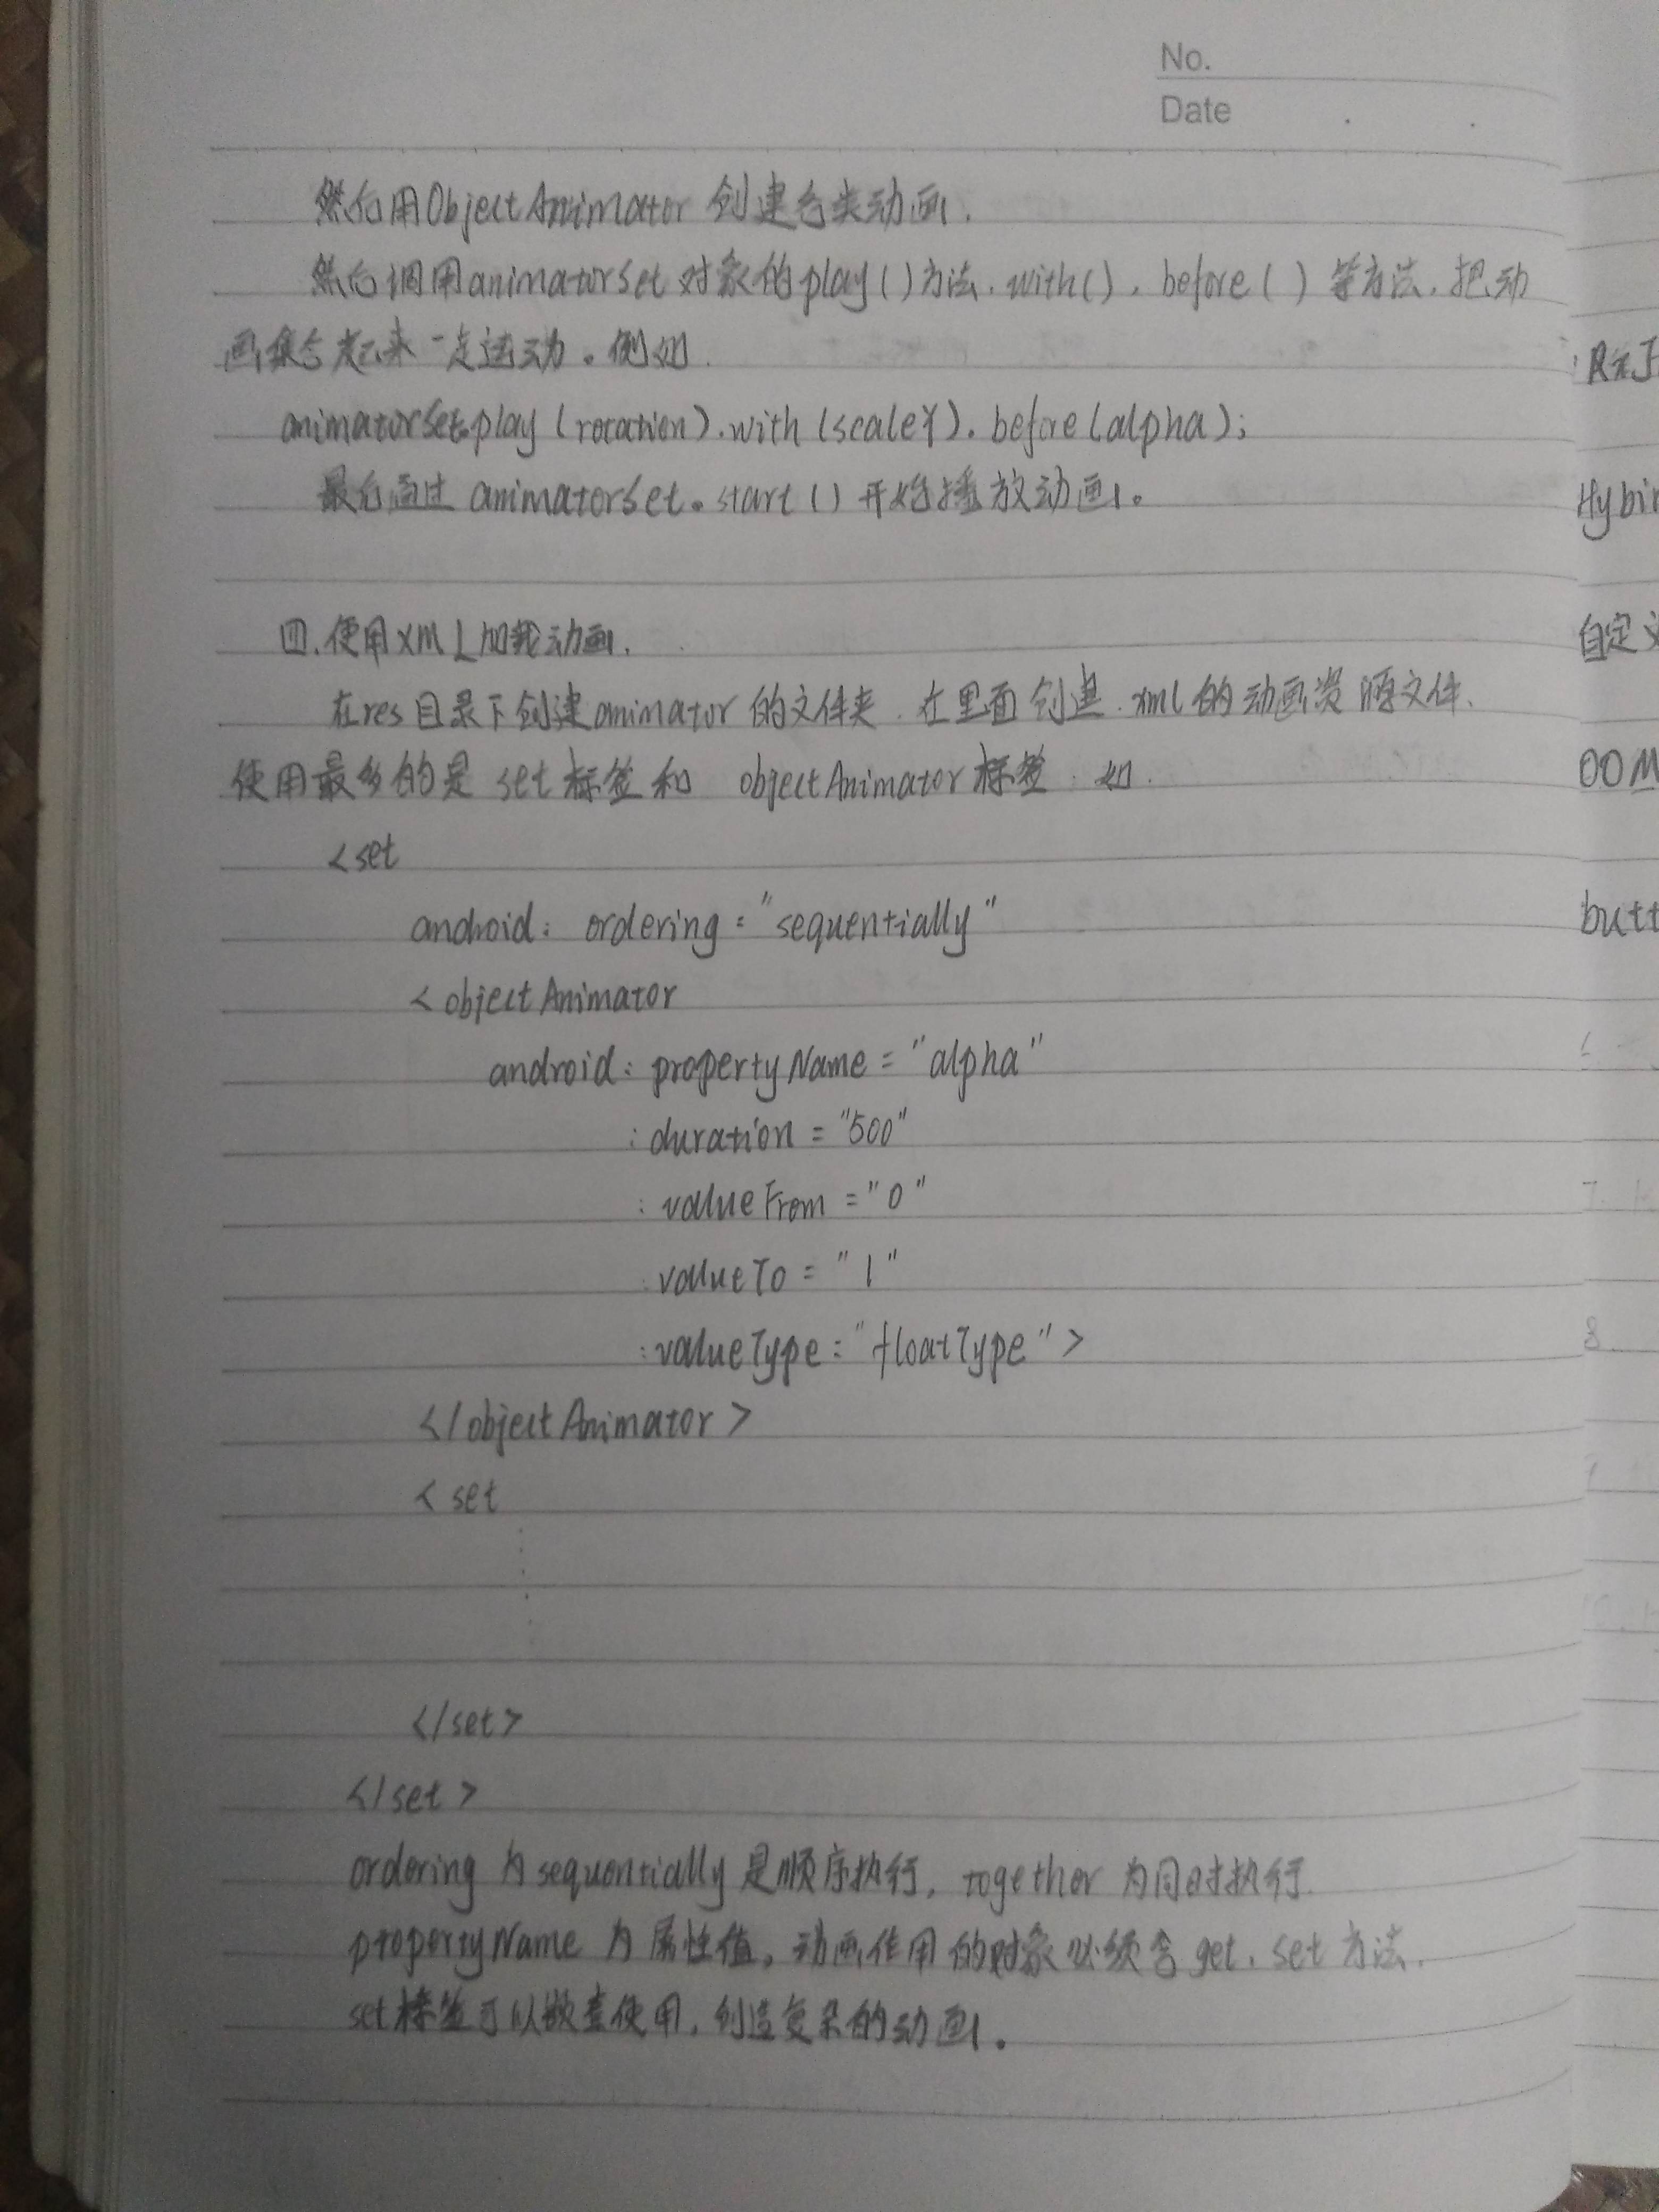 No.
Date
然后用ObjectAnimator 创建各类动画.
然后调用animatorSet 对象的play()方法.with().before()等方法.把动
画集合起来一起运动。例如
animatorSet.play(rotation).with(scaleY).before(alpha);
最后通过 animatorSet.start()开始播放动画。
四.使用XML加载动画.
在res目录下创建animator的文件夹.在里面创建.xml的动画资源文件.
使用最多的是set标签和 objectAnimator标签.如.
<set
android: ordering="sequentially"
<objectAnimator
android:propertyName="alpha"
:duration="500"
:valueFrom="0"
:valueTo="1"
:valueType="floatType">
</objectAnimator>
<set
</set>
</set>
ordering 为sequentially是顺序执行, together 为同时执行.
propertyName 为属性值,动画作用的对象必须含get.set方法.
set标签可以嵌套使用,创造复杂的动画。
Hybir
自定义
OOM
butt